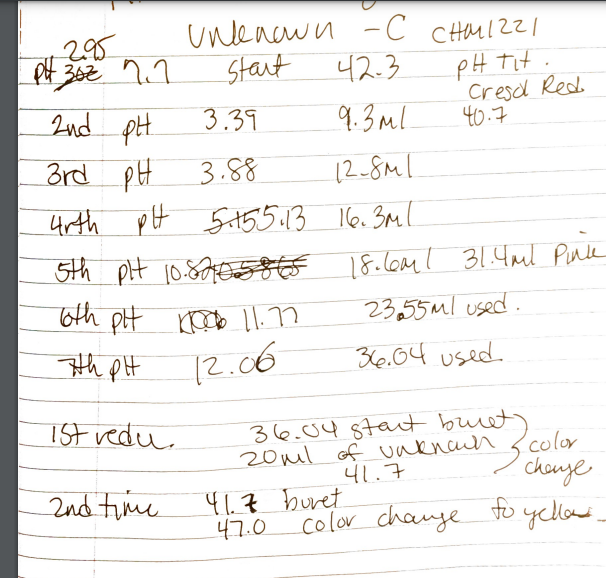 Unknown - C CHM1221
2.95
pH 7.7 start 42.3 pH Tit.
Cresol Red
2nd pH 3.39 9.3ml 40.7
3rd pH 3.88 12.8ml
4rth pH 5.13 16.3ml
5th pH 10.82 18.6ml 31.4ml Pink
6th pH 11.77 23.55ml used.
7th pH 12.06 36.04 used.
1st redu. 36.04 start buret
20ml of unknown } color
41.7 change
2nd time 41.7 buret
47.0 color change to yellow